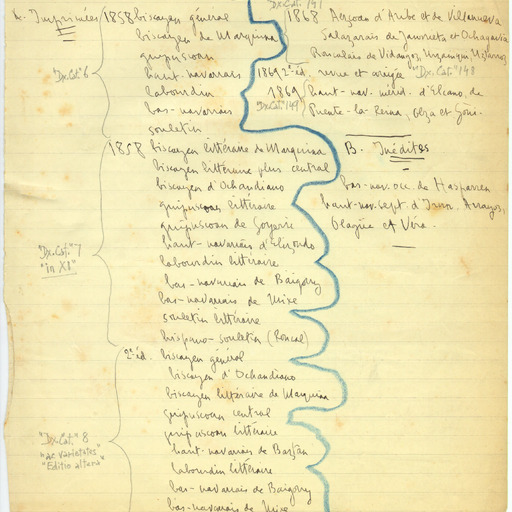 A. Imprimées
1858 biscayen général
biscayen de Marquina
guipuscoan
haut-navarrais
labourdin
bas-navarrais
souletin
"Dx. Cat." 6
1858 biscayen littéraire de Marquina
biscayen littéraire plus central
biscayen d'Ochandiano
guipuscoan littéraire
guipuscoan de Goyerri
haut-navarrais d'Elizondo
labourdin littéraire
bas-navarrais de Baigorry
bas-navarrais de Mixe
souletin littéraire
hispano-souletin (Roncal)
"Dx. Cat." 7
"in XI"
2e éd. biscayen général
biscayen d'Ochandiano
biscayen littéraire de Marquina
guipuscoan central
guipuscoan littéraire
haut-navarrais de Bastan
labourdin littéraire
bas-navarrais de Baigorry
bas-navarrais de Mixe
"Dx. Cat." 8
"ac varietates"
"Editio altera"
"Dx. Cat." 147
1868 Aezcoan d'Aribe et de Villanueva
Salazarais de Jaurrieta et Ochagavia
Roncalais de Vidangoz, Urzainqui, Uztarroz
1869 2e éd. revue et "Dx. Cat." 148
1869 haut-nav. mérid. d'Elcano, de
"Dx. Cat." 149 Puente-la-Reina, Olza et Goñi.
B. Inédites
bas-nav. occ. de Hasparren
haut-nav. sept. d'Irun, Arrayoz,
Olagüe et Vera.